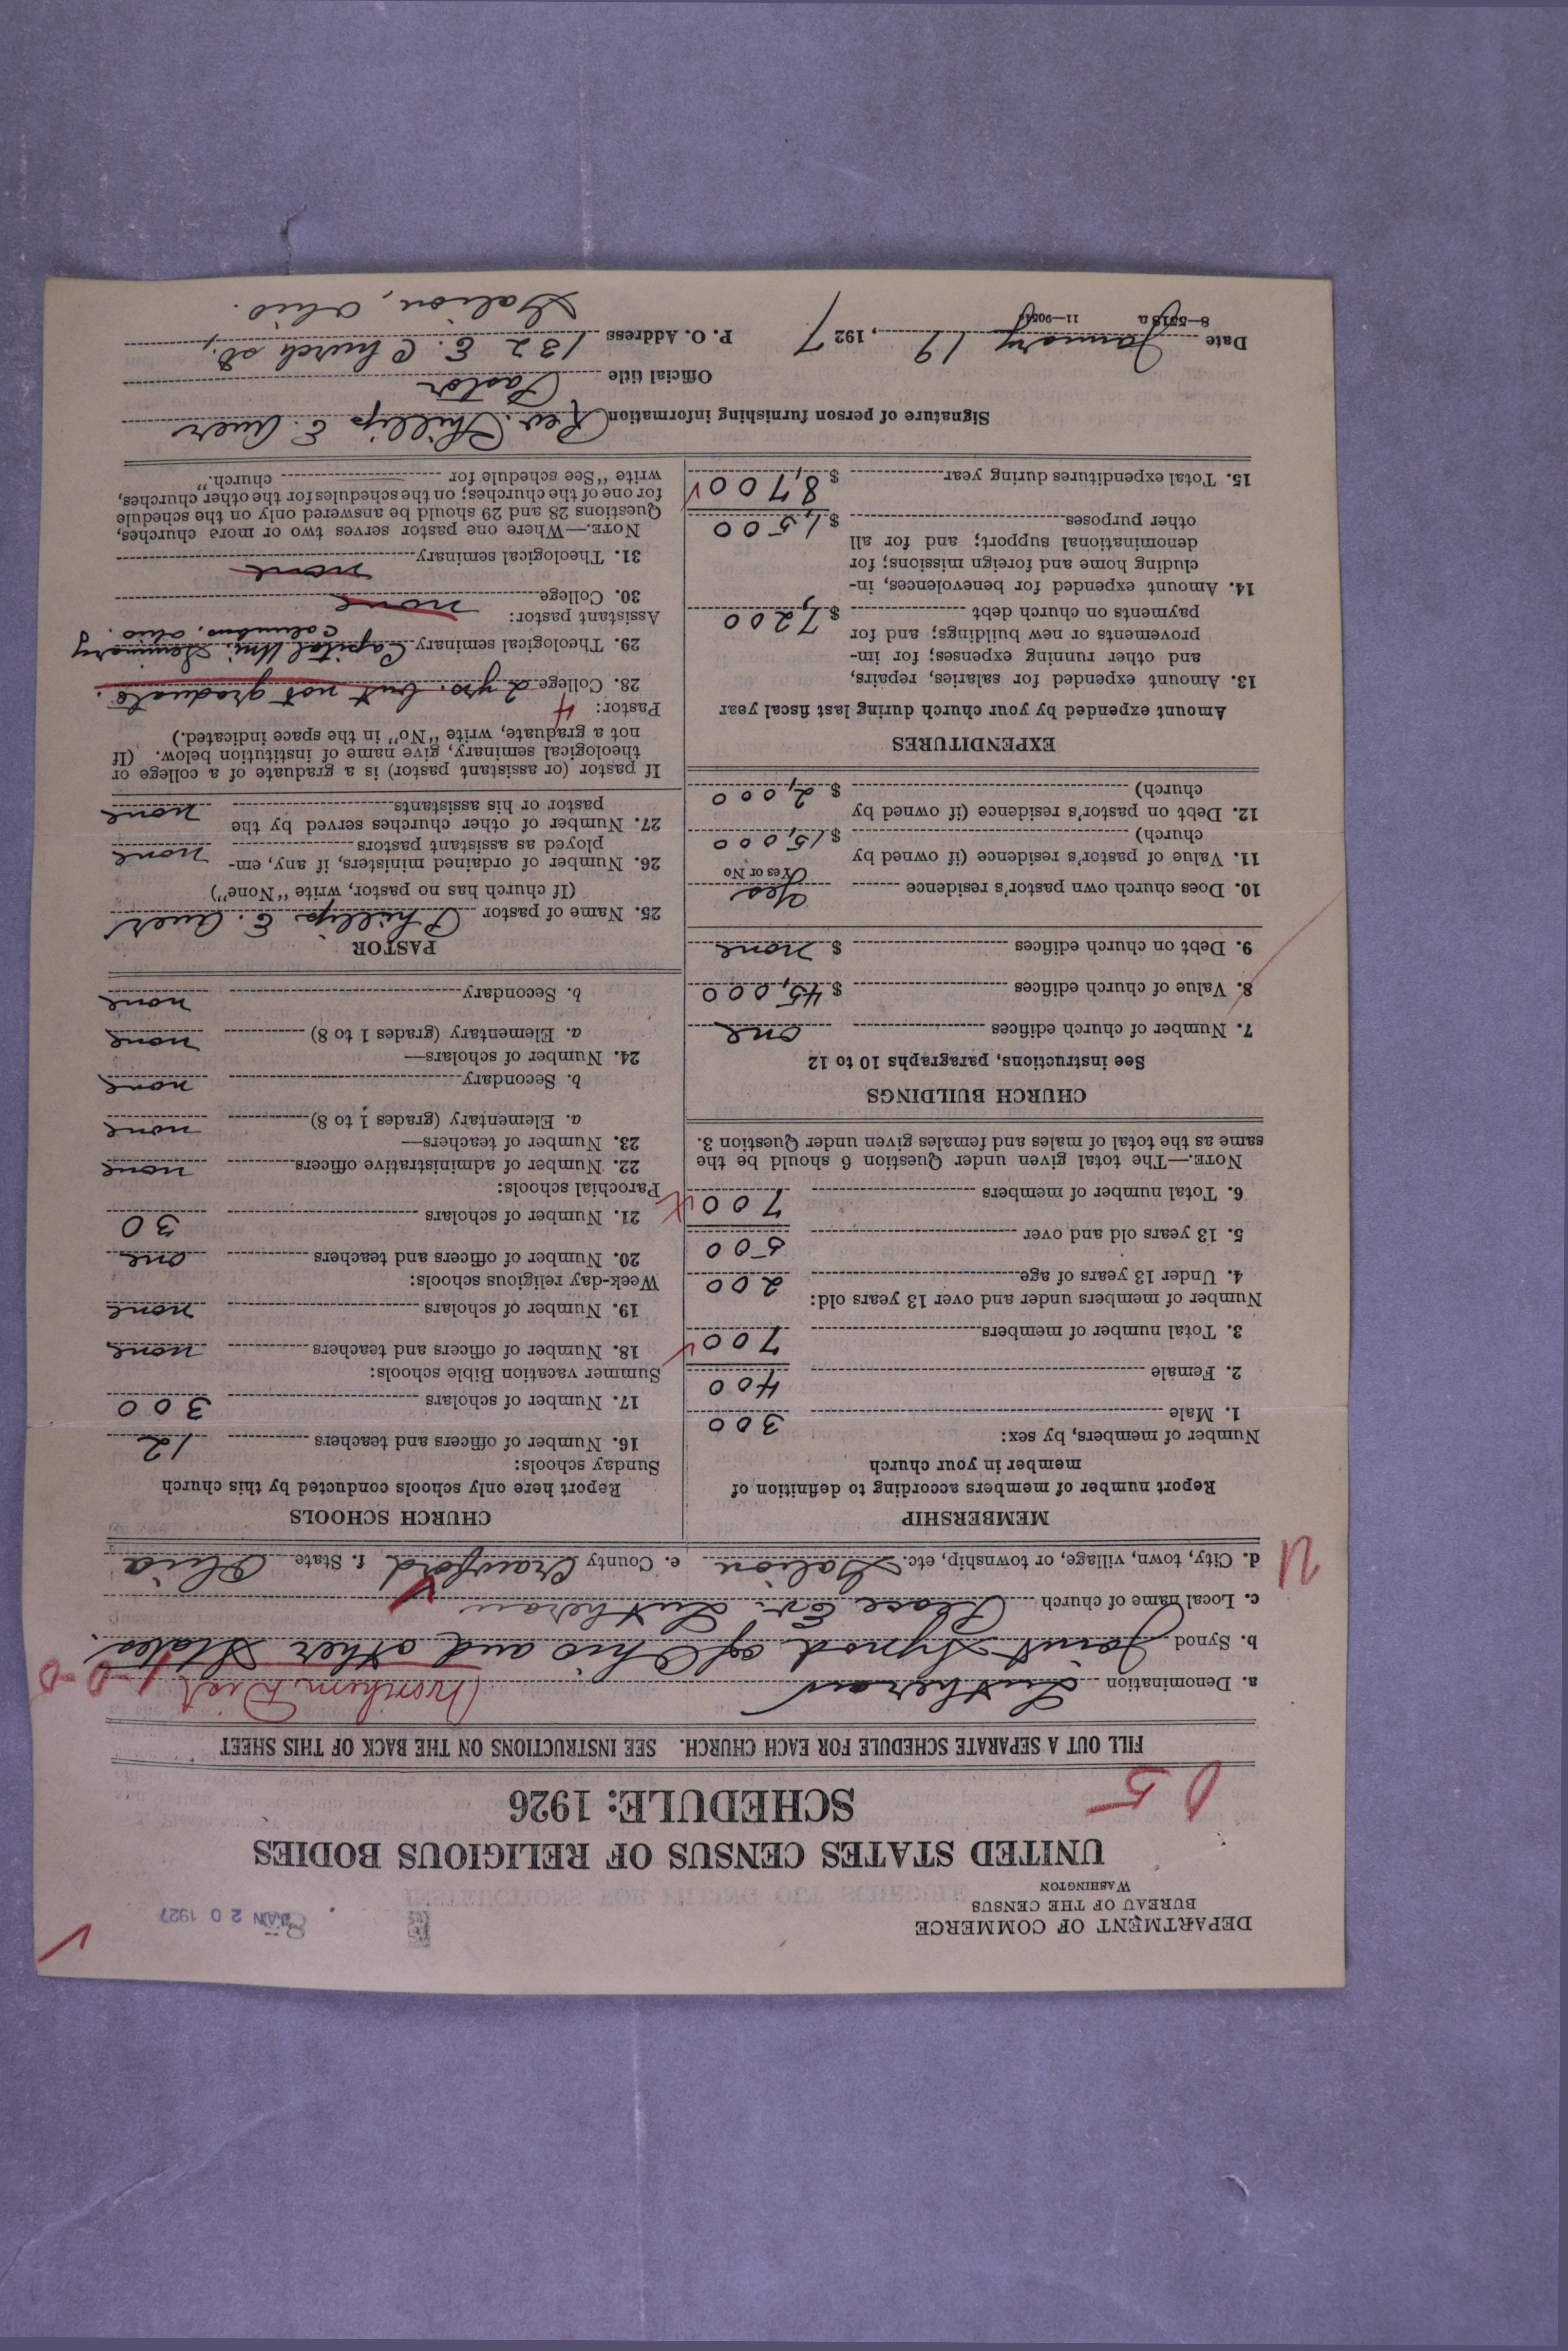 DEPARTMENT OF COMMERCE
BUREAU OF THE CENSUS
WASHINGTON
JAN 20 1927
UNITED STATES CENSUS OF RELIGIOUS BODIES
SCHEDULE: 1926
FILL OUT A SEPARATE SCHEDULE FOR EACH CHURCH. SEE INSTRUCTIONS ON THE BACK OF THIS SHEET
a. Denomination Lutheran Northern Dist
b. Synod Joint Synod of Ohio and other States.
c. Local name of church Peace Ev. Lutheran
d. City, town, village, or township, etc. Galion e. County Crawford f. State Ohio
MEMBERSHIP
Report number of members according to definition of
member in your church
Number of members, by sex:
1. Male 300
2. Female 400
3. Total number of members 700
Number of members under and over 13 years old:
4. Under 13 years of age 200
5. 13 years old and over 500
6. Total number of members 700
NOTE.—The total given under Question 6 should be the
same as the total of males and females given under Question 3.
CHURCH BUILDINGS
See instructions, paragraphs 10 to 12
7. Number of church edifices one
8. Value of church edifices $ 45,000
9. Debt on church edifices $ none
10. Does church own pastor's residence Yes
Yes or No
11. Value of pastor's residence (if owned by
church) $ 15,000
12. Debt on pastor's residence (if owned by
church) $ 2,000
EXPENDITURES
Amount expended by your church during last fiscal year
13. Amount expended for salaries, repairs,
and other running expenses; for im-
provements or new buildings; and for
payments on church debt $ 7,200
14. Amount expended for benevolences, in-
cluding home and foreign missions; for
denominational support; and for all
other purposes $ 1,500
15. Total expenditures during year $ 8,700
CHURCH SCHOOLS
Report here only schools conducted by this church
Sunday schools:
16. Number of officers and teachers 12
17. Number of scholars 300
Summer vacation Bible schools:
18. Number of officers and teachers none
19. Number of scholars none
Week-day religious schools:
20. Number of officers and teachers one
21. Number of scholars 30
Parochial schools:
22. Number of administrative officers none
23. Number of teachers—
a. Elementary (grades 1 to 8) none
b. Secondary none
24. Number of scholars—
a. Elementary (grades 1 to 8) none
b. Secondary none
PASTOR
25. Name of pastor Phillip E. Auer
(If church has no pastor, write "None")
26. Number of ordained ministers, if any, em-
ployed as assistant pastors none
27. Number of other churches served by the
pastor or his assistants none
If pastor (or assistant pastor) is a graduate of a college or
theological seminary, give name of institution below. (If
not a graduate, write "No" in the space indicated.)
Pastor: 4
28. College 2 yrs. but not graduate.
29. Theological seminary Capital Uni. Seminary
Columbus, Ohio.
Assistant pastor:
30. College none
31. Theological seminary none
NOTE.—Where one pastor serves two or more churches,
Questions 28 and 29 should be answered only on the schedule
for one of the churches; on the schedules for the other churches,
write "See schedule for church."
Signature of person furnishing information Rev. Phillip E. Auer
Official title Pastor
Date January 19, 1927 P. O. Address 132 E. Church st.,
Galion, Ohio.